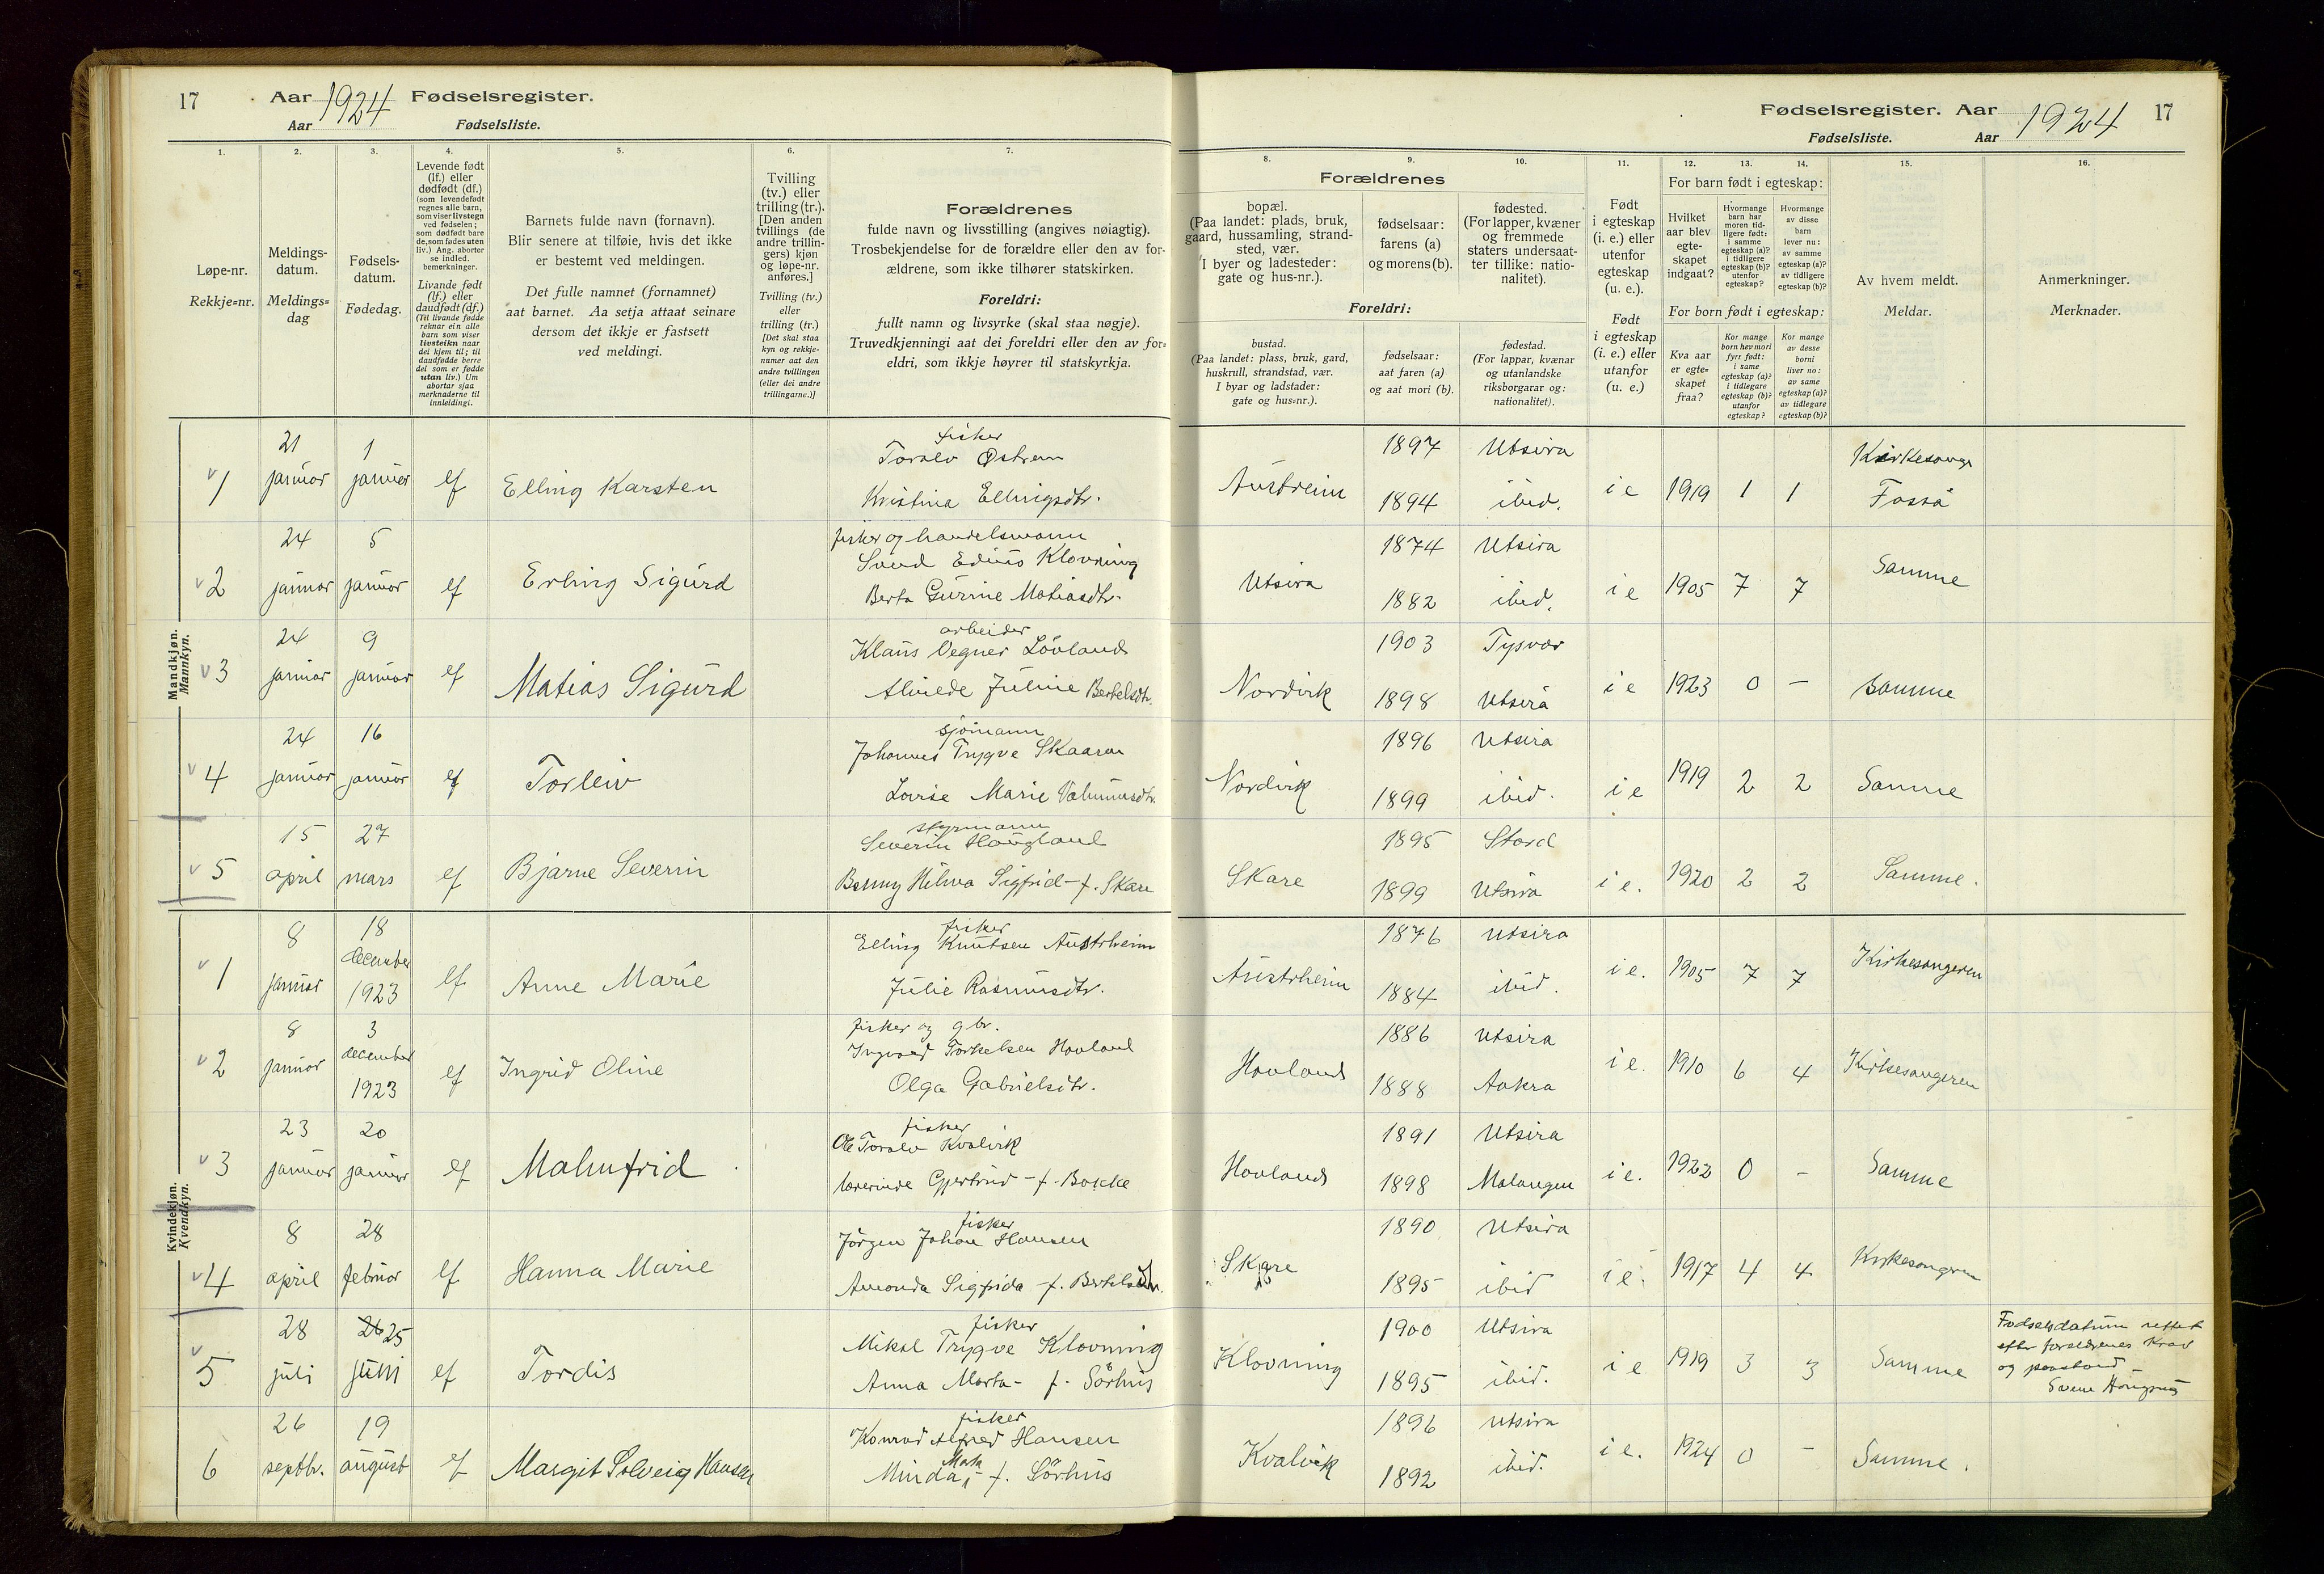 17 Aar 1924 Fødselsregister.
Aar Fødselsliste.
Fødselsregister. Aar 1924 17
Fødselsliste. Aar
1.
Løpe-nr.
Rekkje=nr.
2.
Meldings-
datum.
Meldings=
dag
3.
Fødsels-
datum.
Fødedag.
4.
Levende født
(lf.) eller
dødfødt (df.)
(som levendefødt
regnes alle barn,
som viser livstegn
ved fødselen;
som dødfødt bare
de, som fødes uten
liv.) Ang. aborter
se indled.
bemerkninger.
Livande født
(lf.) eller
daudfødt (df.)
(Til livande fødde
reknar ein alle
barn som viser
livsteikn naar
dei kjem til; til
daudfødde berre
dei som er fødde
utan liv.) Um
abortar sjaa
merknaderne til
innleidingi.
5.
Barnets fulde navn (fornavn).
Blir senere at tilføie, hvis det ikke
er bestemt ved meldingen.
Det fulle namnet (fornamnet)
aat barnet. Aa setja attaat seinare
dersom det ikkje er fastsett
ved meldingi.
6.
Tvilling
(tv.) eller
trilling (tr.).
[Den anden
tvillings (de
andre trillin-
gers) kjøn
og løpe-nr.
anføres.]
Tvilling (tv.)
eller
trilling (tr.)
[Det skal staa
kyn og rekkje-
numer aat den
andre tvillingen
(eller dei andre
trillingarne.)]
7.
Forældrenes
fulde navn og livsstilling (angives nøiagtig).
Trosbekjendelse for de forældre eller den av for-
ældrene, som ikke tilhører statskirken.
Foreldri:
fullt namn og livsyrke (skal staa nøgje).
Truvedkjenningi aat dei foreldri eller den av for=
eldri, som ikkje høyrer til statskyrkja.
Forældrenes
8.
bopæl.
(Paa landet: plads, bruk,
gaard, hussamling, strand-
sted, vær.
I byer og ladesteder:
gate og hus-nr.).
9.
fødselsaar:
farens (a)
og morens (b).
10.
fødested.
(For lapper, kvæner
og fremmede
staters undersaat-
ter tillike: natio-
nalitet).
Foreldri:
bustad.
(Paa landet: plass, bruk, gard,
huskrull, strandstad, vær.
I byar og ladstader:
gate og hus=nr.).
fødselsaar:
aat faren (a)
og aat mori (b).
fødestad.
(For lappar, kvænar
og utanlandske
riksborgarar og:
nationalitet).
11.
Født
i egteskap
(i. e.) eller
utenfor
egteskap
(u. e.).
Født
i egteskap
(i. e.) eller
utanfor
(u. e.)
For barn født i egteskap:
12.
Hvilket
aar blev
egte-
skapet
indgaat?
13.
Hvormange
barn har
moren tid-
ligere født:
i samme
egteskap (a)?
i tidligere
egteskap (b)?
utenfor
egteskap?
14.
Hvormange
av disse
barn
lever nu:
av samme
egteskap (a)?
av tidligere
egteskap (b)?
For born født i egteskap:
Kva aar
er egte=
skapet
fraa?
Kor mange
born hev mori
fyrr født:
i same
egteskap (a)?
i tidlegare
egteskap (b)?
utanfor
egteskap?
Kor mange
av desse
borni
liver no:
av same
egteskap (a)?
av tidlegare
egteskap (b)?
15.
Av hvem meldt.
Meldar.
16.
Anmerkninger.
Merknader.
Mandkjøn.
Mannkyn.
1 21 januar 1 januar lf Elling Karsten
fisker
Toralv Østrem
Kristina Ellingsdtr.
Austreim 1897 Utsira
1894 ibid. i e 1919 1 1 Kirkesanger
Fosså
2 24 januar 5 januar lf Erling Sigurd
fisker og handelsmann
Svend Edius Klovning
Berta Gurine Matiasdtr.
Utsira 1874 Utsira
1882 ibid. i e 1905 7 7 Samme
3 24 januar 9 januar lf Matias Sigurd
arbeider
Klaus Vegner Lövland
Alvilde Juline Bertelsdtr.
Nordvik 1903 Tysvær
1898 Utsira i e 1923 0 – Samme
4 24 januar 16 januar lf Torleiv
sjömann
Johannes Trygve Skaaren
Lovise Marie
Nordvik 1896 Utsira
1899 ibid. i e 1919 2 2 Samme
5 15 april 27 mars lf Bjarne Severin
styrmann
Severin Haugland
Benny Hilma Sigfrid – f. Skare
Skare 1895 Stord
1899 Utsira i e. 1920 2 2 Samme.
Kvindekjøn.
Kvendkyn.
1 8 januar 18 december 1923 lf Anne Marie
fisker
Elling Knutsen Austrheim
Julie Rasmusdtr.
Austrheim 1876 Utsira
1884 ibid. i e. 1905 7 7 Kirkesangeren
2 8 januar 3 december 1923 lf Ingrid Oline
fisker og gbr.
Ingvald Torkelsen Hovland
Olga Gabrielsdtr.
Hovland 1886 Utsira
1888 Aakra i e. 1910 6 4 Kirkesangeren
3 23 januar 20 januar lf Malmfrid
fisker
Ole Toralv Kvalvik
lærerinde Gjertrud – f. Bakke
Hovland 1891 Utsira
1898 Malangen i e. 1922 0 – Samme
4 8 april 28 februar lf Hanna Marie
fisker
Jörgen Johan Hansen
Amanda Sigfrida – f. Bertelsen
Skare 1890 Utsira
1895 ibid i e. 1917 4 4 Kirkesangeren
5 28 juli 26 25 juni lf Tordis
fisker
Mikal Trygve Klovning
Anna Marta – f. Sörhus
Klovning 1900 Utsira
1895 ibid. i e 1919 3 3 Samme
Fødselsdatum rettet
efter foreldrenes krav
og paastand
6 26 septbr. 19 august lf Margit Solveig Hansen
fisker
Konrad Alfred Hansen
Minda – f. Sörhus
Kvalvik 1896 Utsira
1892 ibid. i e. 1924 0 – Samme.